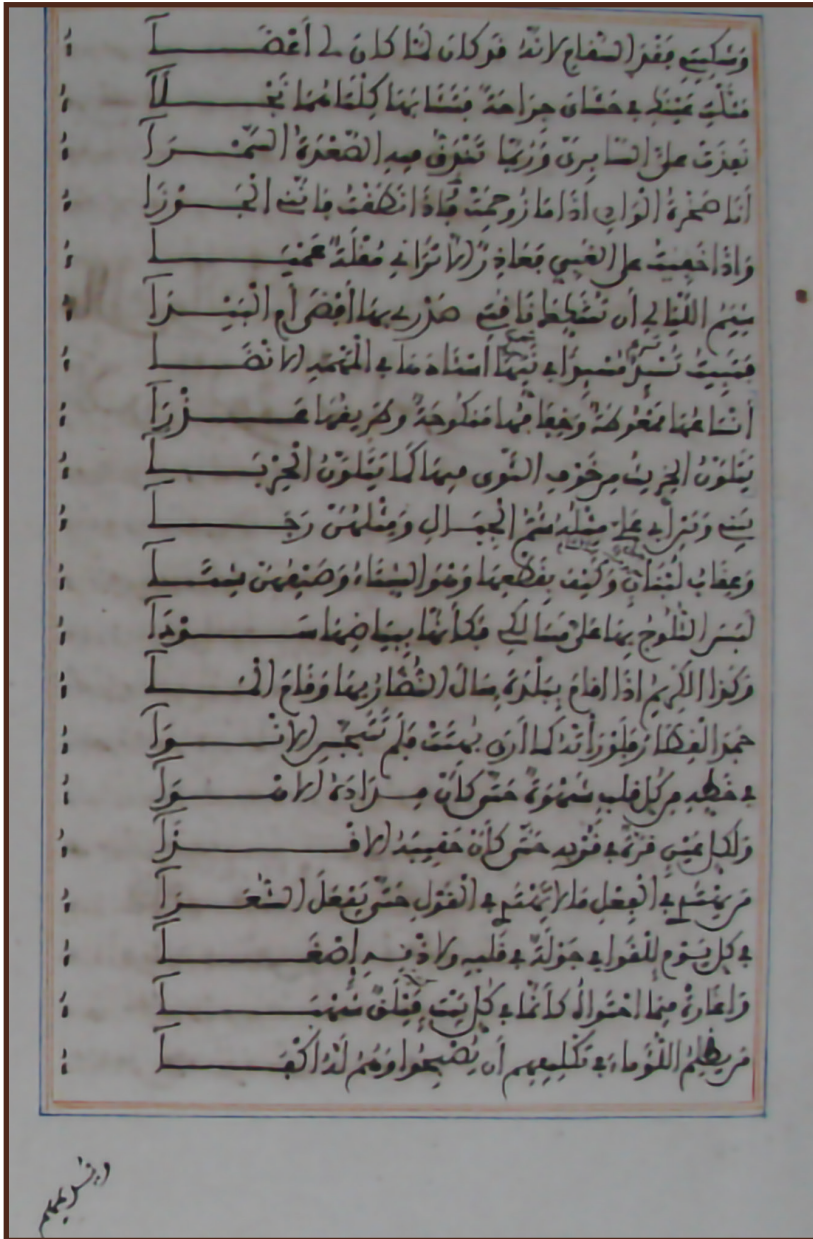 وشكيتي فقد السقام لانه قد كان لما كان لي أعضا
مثلت عينك في حشاي جراحة فتشابها كلتاهما نجلا
نفذت علي السابري وربما تندق فيه الصعدة السمرا
أنا صخرة الوادي اذا ما زوحمت فاذا نطقت فانني الجوزا
واذا خفيت على الغبي فعاذر الا تراني مقلة عميا
شيم الليالي أن تشكك ناقتي صدري بها أفضى أم البيدا
فتبيت تسئد مسئدا في نيها اسئادها في المهمه الانضا
أنساعها ممغوطة وخفافها منكوحة وطريقها عذرا
يتلون الخريت من خوف التوى فيها كما يتلون الحربا
بيني وبين أبي علي مثله شم الجبال ومثلهن رجا
وعقاب لبنان وكيف بقطعها وهو الشتاء وصيفهن شتا
لبس الثلوج بها علي مسالكي فكأنها ببياضها سودا
وكذا الكريم اذا اقام ببلدة سال النضار بها وقام الما
جمد القطار فلو رأته كما أرى بهتت فلم تتبجس الانوا
في خطه من كل قلب شهوة حتى كأن مداده الاهوا
ولكل عين قرة في قربه حتى كأن مغيبه الاقذا
من يهتدي في الفعل ما لا يهتدي في القول حتى يفعل الشعرا
في كل يوم للقوافي جولة في قلبه ولاذنه إصغا
واغارة فيما احتواه كأنما في كل بيت فيلق شهبا
من يظلم اللؤماء في تكليفهم أن يصبحوا وهم له أكفا